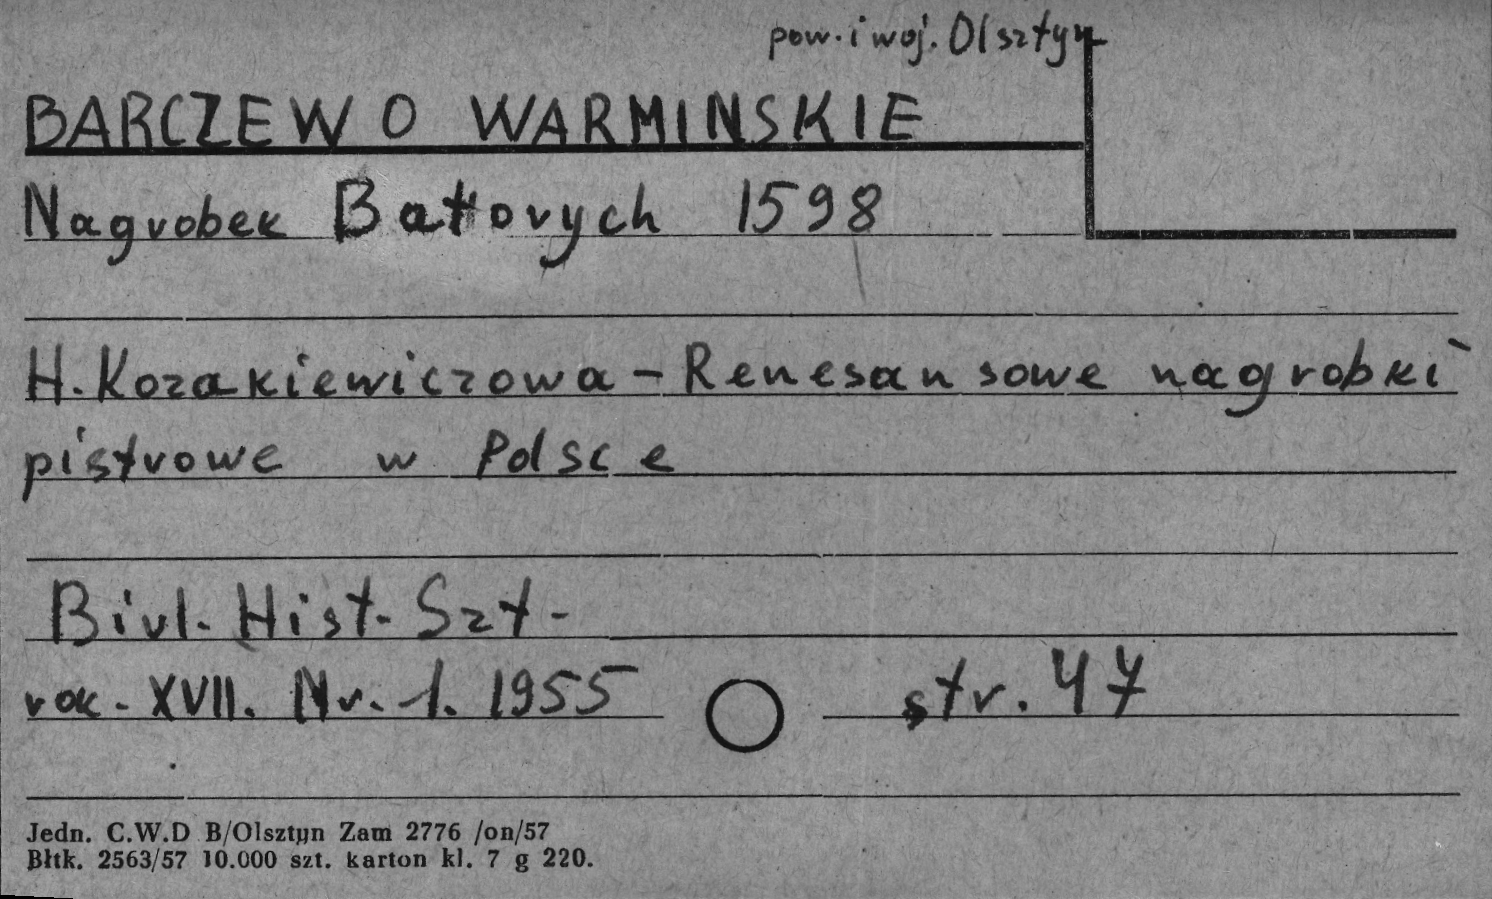 pow. i woj. Olsztyn
BARCZEWO WARMINSKIE
Nagrobek Batorych 1598
H. Kozakiewiczowa - Renesansowe nagrobki
pistrowe w Polsce
Biul. Hist. Szt.
rok. XVII. Nr. 1. 1955 str. 47
Jedn. C.W.D B/Olsztyn Zam 2776 /on/57
Błtk. 2563/57 10.000 szt. karton kl. 7 g 220.